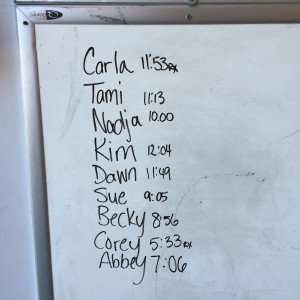 Carla 11:53RX
Tami 11:13
Nadja 10:00
Kim 12:04
Dawn 11:49
Sue 9:05
Becky 8:56
Corey 5:33RX
Abbey 7:06